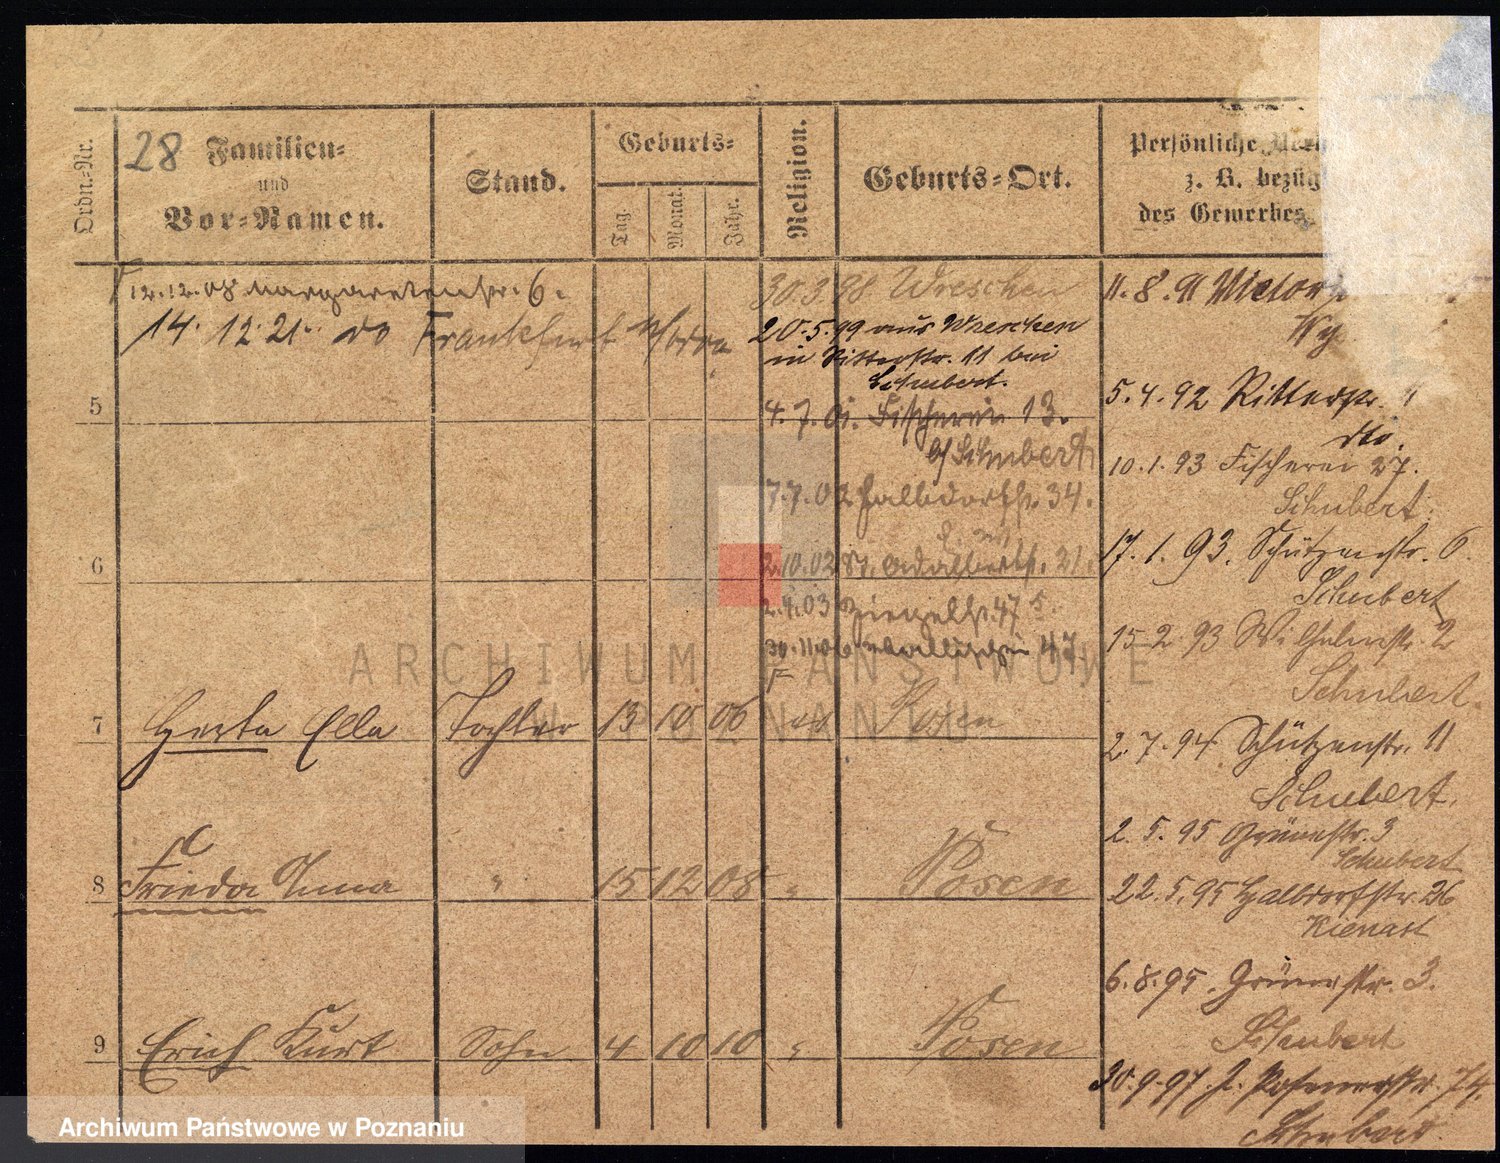 Ordn.-Nr.
28 Familien-
und
Vor-Namen.
Stand.
Geburts-
Tag.
Monat.
Jahr.
Religion.
Geburts-Ort.
Persönliche
z. B. bezüg
des Gewerbes,
12.12.08 Margaretenstr. 6.
14. 12. 21. do Frankfurt a/Oder
30.3.98 Wreschen
20.5.99 aus Wreschen
in Ritterstr. 11 bei
Schubert.
4.7.01. Fischerei 13.
b/ Schubert
7.7.02 Halbdorfstr. 34.
2.10.02 St. Adalbertstr. 21.
2.4.03 Ziegelstr. 47
30.11.06 Wallischei 47.
5
6
7 Herta Ella Tochter 13 10 06 Posen
8 Frieda Anna " 15 12 08 " Posen
9 Erich Kurt Sohn 4 10 10 " Posen
11.8.91 Victoria
5.4.92 Ritterstr.
dto.
10.1.93 Fischerei 27.
Schubert.
17.1.93. Schützenstr. 6.
Schubert
15.2.93 Wilhelmstr. 2
Schubert.
2.7.94 Schützenstr. 11
Schubert.
2.5.95 Grünestr. 3
Schubert
22.5.95 Halbdorfstr. 26
Kienast
6.8.95. Grünestr. 3.
Schubert
30.9.97. J. Posenerstr. 74.
Schubert.
ARCHIWUM PAŃSTWOWE
W POZNANIU
Archiwum Państwowe w Poznaniu